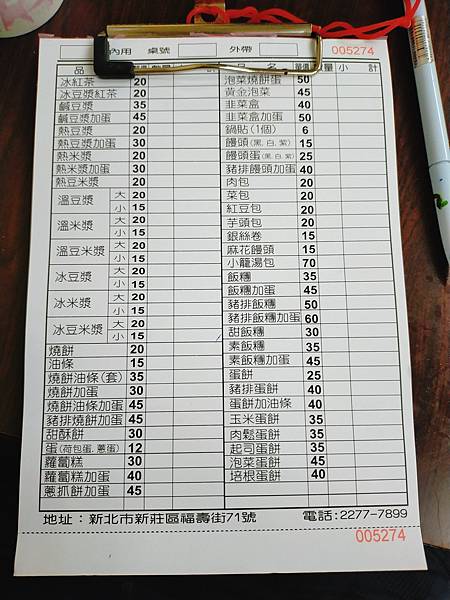 內用 桌號 外帶 005274
品
冰紅茶 20
冰豆漿紅茶 20
鹹豆漿 35
鹹豆漿加蛋 45
熱豆漿 20
熱豆漿加蛋 30
熱米漿 20
熱米漿加蛋 30
熱豆米漿 20
溫豆漿 大 20
小 15
溫米漿 大 20
小 15
溫豆米漿 大 20
小 15
冰豆漿 大 20
小 15
冰米漿 大 20
小 15
冰豆米漿 大 20
小 15
燒餅 20
油條 15
燒餅油條(套) 35
燒餅加蛋 30
燒餅油條加蛋 45
豬排燒餅加蛋 45
甜酥餅 30
蛋(荷包蛋.蔥蛋) 12
蘿蔔糕 30
蘿蔔糕加蛋 40
蔥抓餅加蛋 45
品 名 單價 數量 小 計
泡菜燒餅蛋 50
黃金泡菜 45
韭菜盒 40
韭菜盒加蛋 50
鍋貼(1個) 6
饅頭(黑.白.紫) 15
饅頭蛋(黑.白.紫) 25
豬排饅頭加蛋 40
肉包 20
菜包 20
紅豆包 20
芋頭包 20
銀絲卷 15
麻花饅頭 15
小籠湯包 70
飯糰 35
飯糰加蛋 45
豬排飯糰 50
豬排飯糰加蛋 60
甜飯糰 30
素飯糰 35
素飯糰加蛋 45
蛋餅 25
豬排蛋餅 40
蛋餅加油條 40
玉米蛋餅 35
肉鬆蛋餅 35
起司蛋餅 35
泡菜蛋餅 45
培根蛋餅 40
地址：新北市新莊區福壽街71號 電話:2277-7899
005274